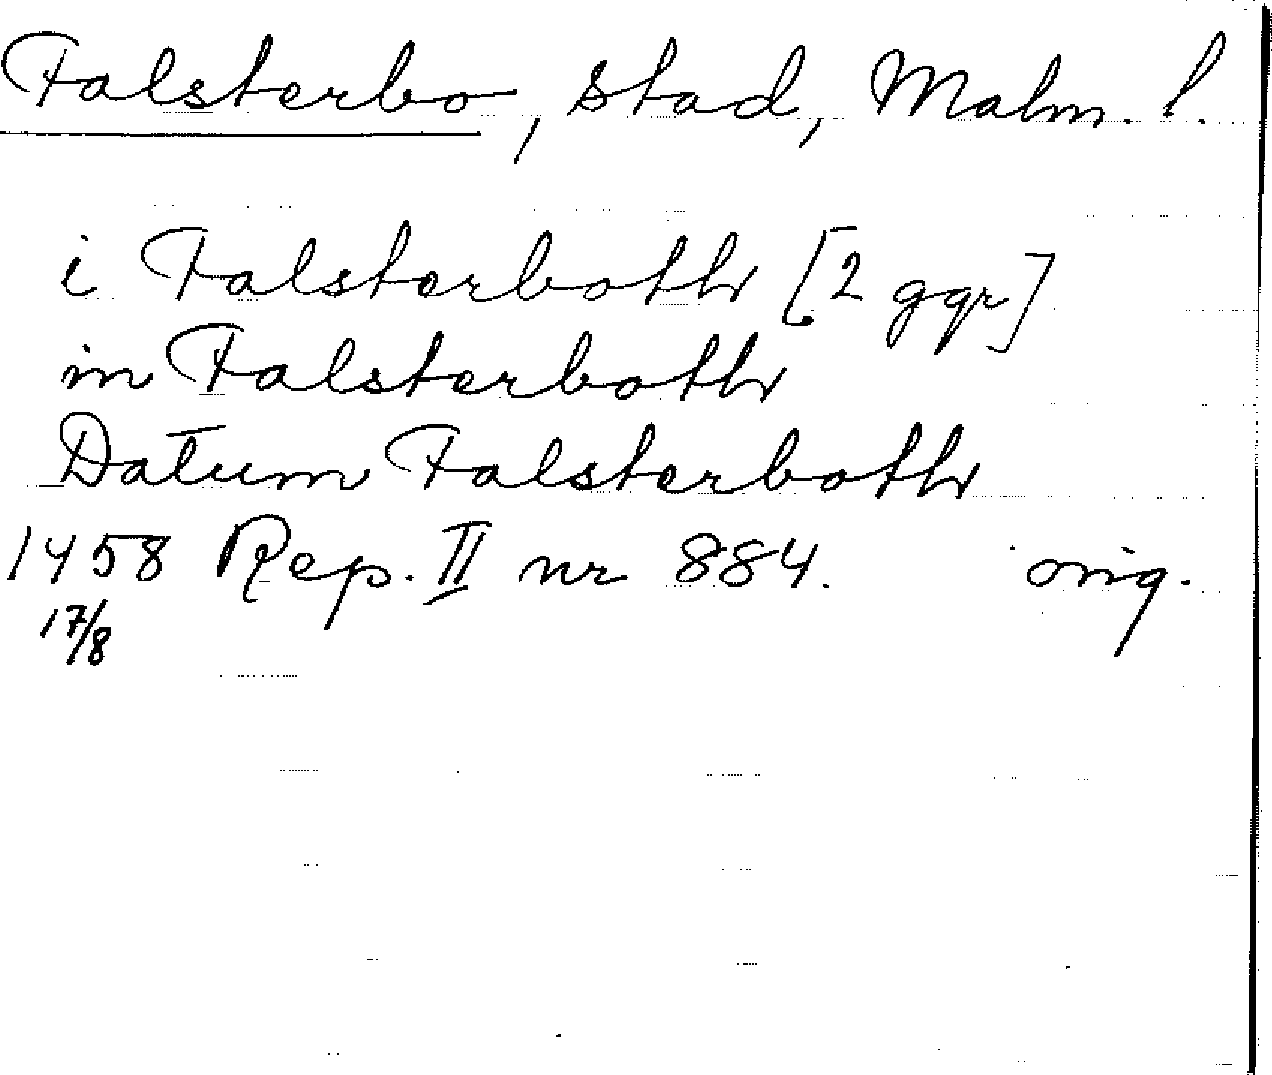 Falsterbo, stad, Malm. l.
i Falsterboth [2 ggr]
in Falsterboth
Datum Falsterboth
1458 Rep. II nr 884. orig.
17/8